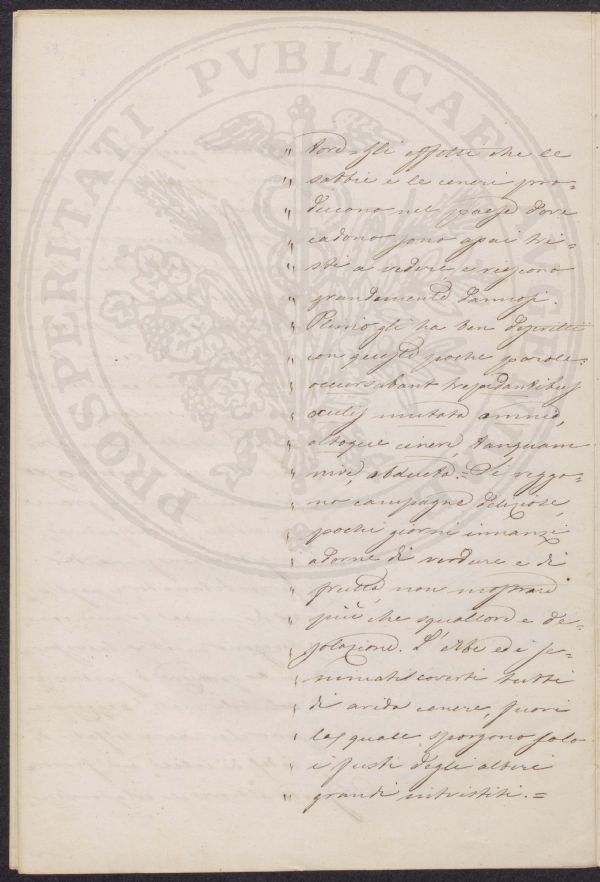 PROSPERITATI PVBLICAE AVGENDAE
" Gli effetti che le
" sabbie e le ceneri pro=
" ducono nel paese dove
" cadono sono assai tri=
" sti a vedere, e riescono
" grandemente dannosi.
" Plinio gli ha ben descritti
" con queste poche parole:
" occursabant trepidantibus
" oculis mutata omnia,
" altoque cinere, tanquam
" nive, obducta = Si veggo=
" no campagne deliziose,
" pochi giorni innanzi
" adorne di verdure e di
" frutta, non mostrare
" più che squallore e de=
" solazione. L'erbe ed i se=
" minati coverti tutti
" di arida cenere, fuori
" la quale sporgono solo
" i fusti degli alberi
" grandi intristiti. =